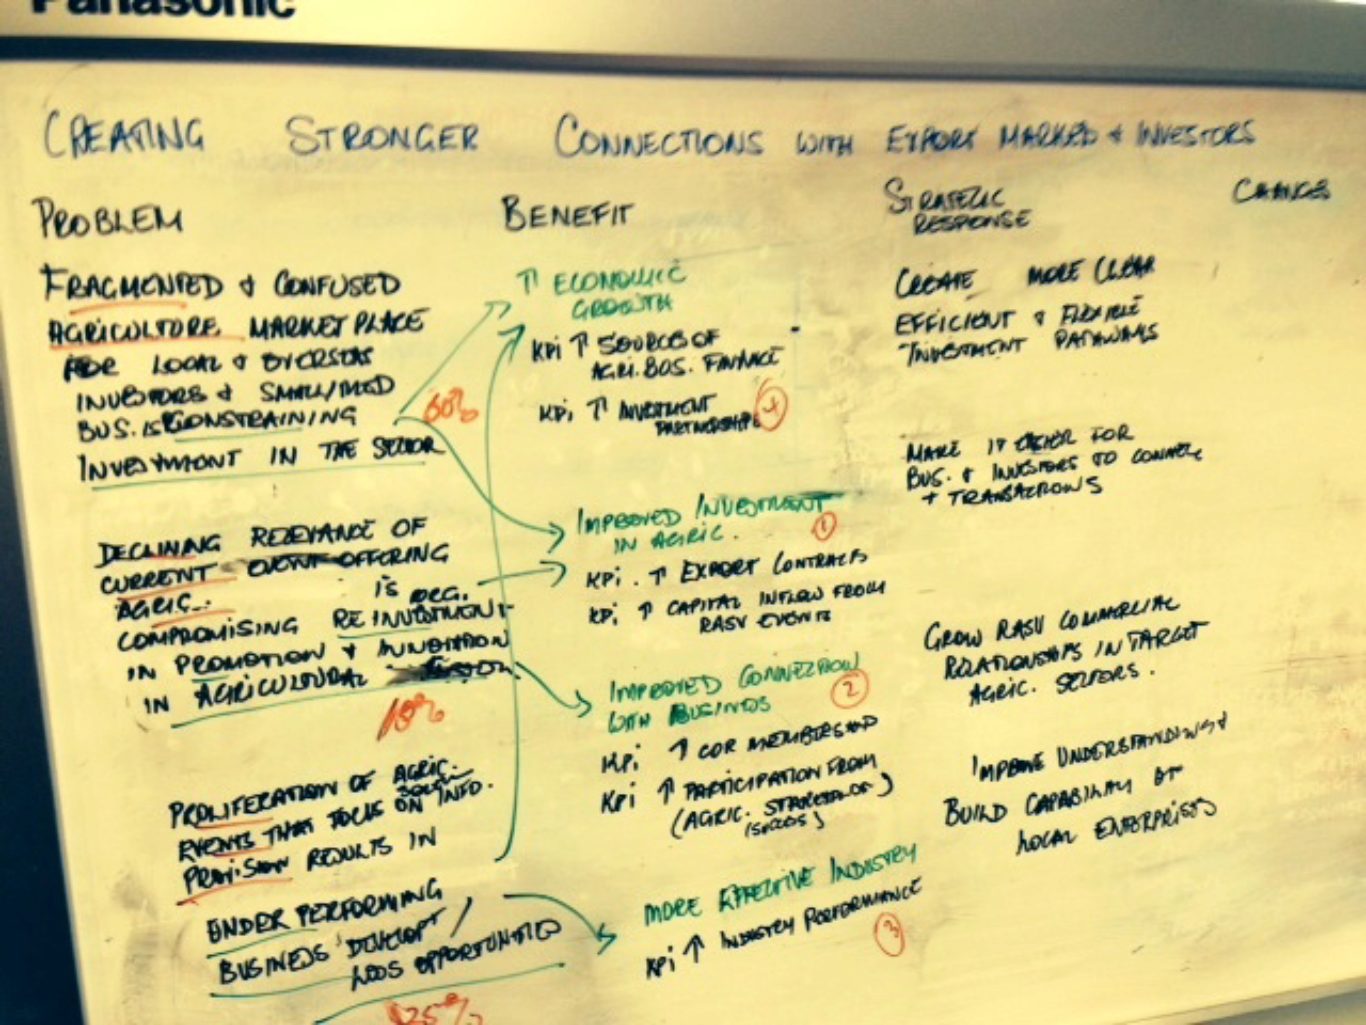 Panasonic
CREATING STRONGER CONNECTIONS WITH EXPORT MARKETS & INVESTORS
PROBLEM
FRAGMENTED & CONFUSED
AGRICULTURE MARKET PLACE
FOR LOCAL & OVERSEAS
INVESTORS & SMALL/MED
BUS. IS CONSTRAINING
INVESTMENT IN THE SECTOR
60%
DECLINING RELEVANCE OF
CURRENT EVENT OFFERING
AGRIC. IS ORG.
COMPROMISING REINVESTMENT
IN PROMOTION & INNOVATION
IN AGRICULTURAL
15%
PROLIFERATION OF AGRIC.
EVENTS THAT FOCUS SOLELY ON INFO.
PROVISION RESULTS IN
UNDER PERFORMING
BUSINESS DEVELOPT /
LOSS OPPORTUNITIES
25%
BENEFIT
↑ ECONOMIC
GROWTH
KPI ↑ SOURCES OF
AGRI. BUS. FINANCE
KPI ↑ INVESTMENT
PARTNERSHIPS
4
IMPROVED INVESTMENT
IN AGRIC. 1
KPI. ↑ EXPORT CONTRACTS
KPI ↑ CAPITAL INFLOW FROM
RASV EVENTS
IMPROVED CONNECTION
WITH BUSINESS 2
KPI ↑ COR MEMBERSHIP
KPI ↑ PARTICIPATION FROM
(AGRIC. STAKEHOL)
MORE EFFECTIVE INDUSTRY
KPI ↑ INDUSTRY PERFORMANCE
3
STRATEGIC
RESPONSE
CREATE MORE CLEAR
EFFICIENT & FLEXIBLE
INVESTMENT PATHWAYS
MAKE IT EASIER FOR
BUS. & INVESTORS TO CONNECT
+ TRANSACTIONS
GROW RASV COMMERCIAL
RELATIONSHIPS IN TARGET
AGRIC. SECTORS.
IMPROVE UNDERSTANDING &
BUILD CAPABILITY OF
LOCAL ENTERPRISES
CHANGES